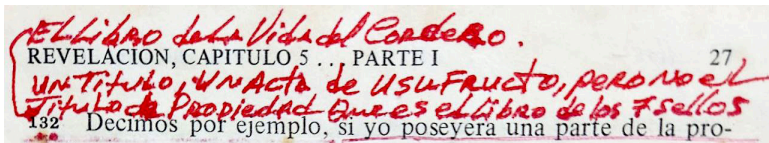 El Libro de La Vida del Cordero.
REVELACION, CAPITULO 5 ... PARTE I 27
un Titulo, un Acta de usufructo, pero no el
Titulo de Propiedad que es el Libro de los 7 sellos
132 Decimos por ejemplo, si yo poseyera una parte de la pro-